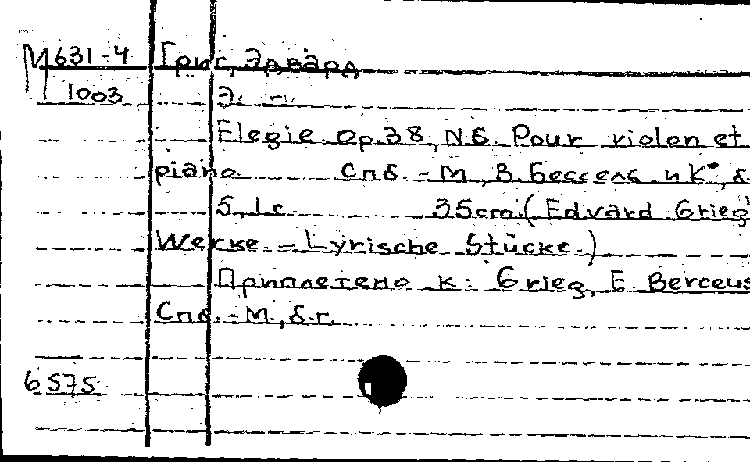 М631-4 Григ, Эдвард
1003 Э. п.
Elegie Op.38, N6. Pour violon et
piano. Спб. - М., В. Бессель и К°, б.
5, 1 с. 35cm. (Edvard Grieg
Werke. = Lyrische Stücke.)
Приплетено к: Grieg, E Berceus
Спб. - М., б.г.
6575